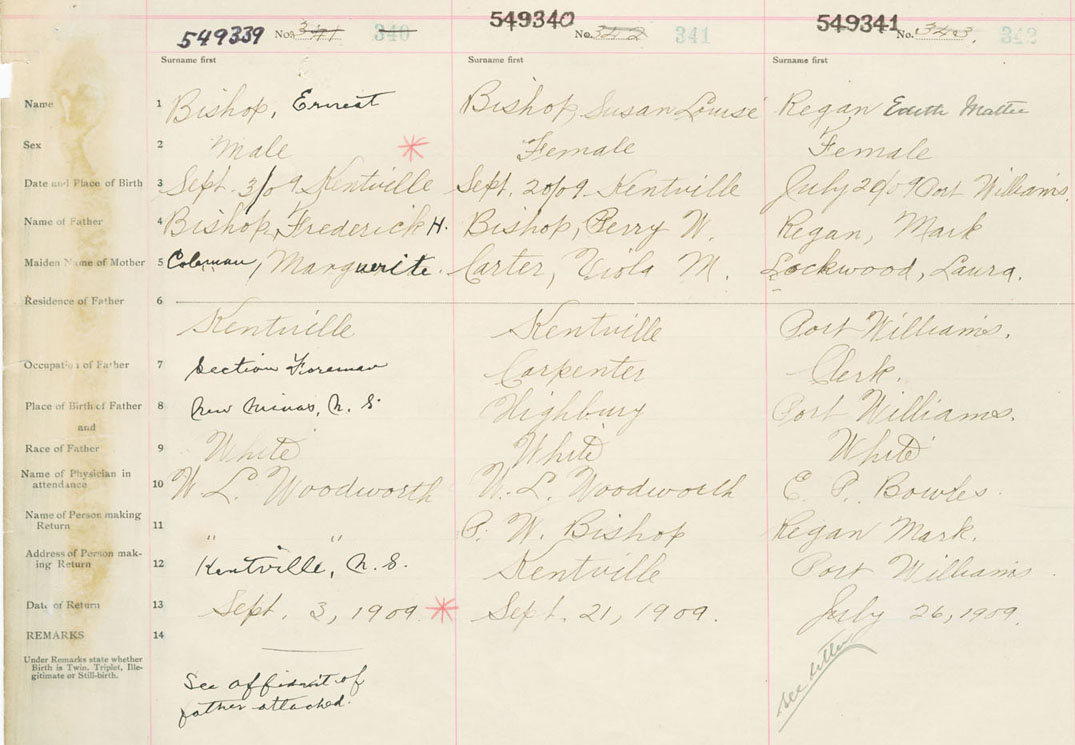 549339 No. 341 340 549340 No. 342 341 549341 No. 343. 343
Surname first Surname first Surname first
Name 1 Bishop, Ernest Bishop, Susan Louise Regan Edith Mattie
Sex 2 Male Female Female
Date and Place of Birth 3 Sept. 3/09 Kentville Sept. 20/09 Kentville July 20/09 Port Williams.
Name of Father 4 Bishop, Frederick H. Bishop, Perry W. Regan, Mark
Maiden Name of Mother 5 Coleman, Marguerite. Carter, Viola M. Lockwood, Laura.
Residence of Father 6
Kentville Kentville Port Williams.
Occupation of Father 7 Section Foreman Carpenter Clerk.
Place of Birth of Father 8 New Minas, N. S. Highbury Port Williams.
and
Race of Father 9 White White White
Name of Physician in
attendance 10 W L. Woodworth W. L. Woodworth E. P. Bowles.
Name of Person making
Return 11 " " P. W. Bishop Regan Mark.
Address of Person mak-
ing Return 12 Kentville, N. S. Kentville Port Williams.
Date of Return 13 Sept. 3, 1909. Sept. 21, 1909. July 26, 1909.
REMARKS 14
Under Remarks state whether
Birth is Twin, Triplet, Ille-
gitimate or Still-birth.
See affidavit of
father attached.
see letter